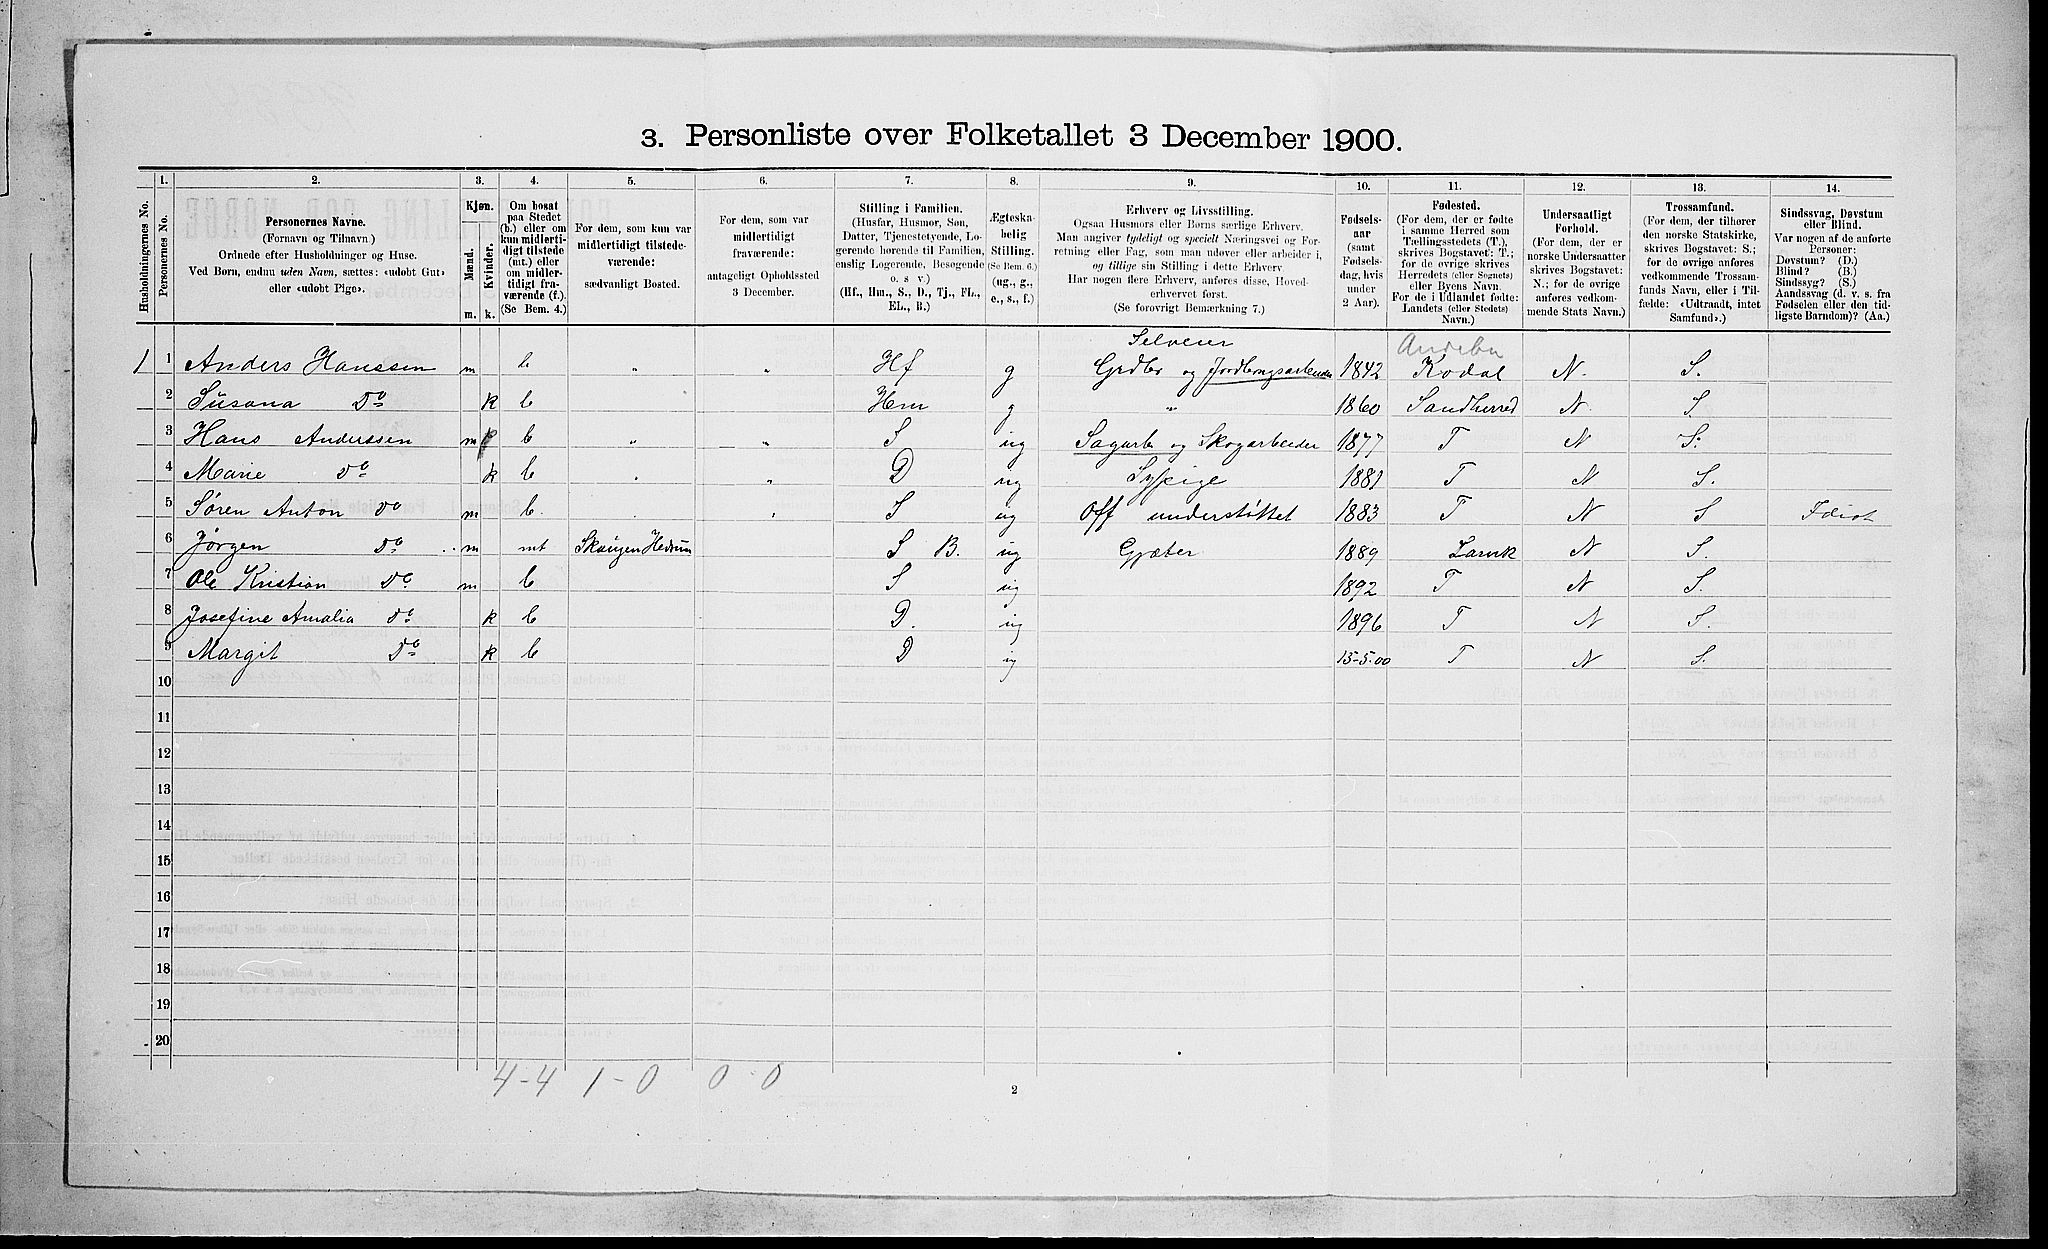 3. Personliste over Folketallet 3 December 1900.
Husholdningernes No.
1. Personernes No.
2. Personernes Navne. (Fornavn og Tilnavn.) Ordnede efter Husholdninger og Huse. Ved Børn, endnu uden Navn, sættes: «udøbt Gut» eller «udøbt Pige».
3. Kjøn. Mænd. m. Kvinder. k.
4. Om bosat paa Stedet (b.) eller om kun midlertidigt tilstede (mt.) eller om midlertidigt fraværende (f.). (Se Bem. 4.)
5. For dem, som kun var midlertidigt tilstedeværende: sædvanligt Bosted.
6. For dem, som var midlertidigt fraværende: antageligt Opholdssted 3 December.
7. Stilling i Familien. (Husfar, Husmor, Søn, Datter, Tjenestetyende, Logerende hørende til Familien, enslig Logerende, Besøgende o. s v.) (Hf., Hm., S., D., Tj., FL., EL., B.)
8. Ægteskabelig Stilling. (Se Bem. 6.) (ug., g., e., s., f.)
9. Erhverv og Livsstilling. Ogsaa Husmors eller Børns særlige Erhverv. Man angiver tydeligt og specielt Næringsvei og Forretning eller Fag, som man udøver eller arbeider i, og tillige sin Stilling i dette Erhverv. Har nogen flere Erhverv, anføres disse, Hovederhvervet først. (Se forøvrigt Bemærkning 7.)
10. Fødselsaar (samt Fødselsdag, hvis under 2 Aar).
11. Fødested. (For dem, der er fødte i samme Herred som Tællingsstedets (T.), skrives Bogstavet: T.; for de øvrige skrives Herredets (eller Sognets) eller Byens Navn. For de i Udlandet fødte: Landets (eller Stedets) Navn.)
12. Undersaatligt Forhold. (For dem, der er norske Undersaatter skrives Bogstavet: N.; for de øvrige anføres vedkommende Stats Navn.)
13. Trossamfund. (For dem, der tilhører den norske Statskirke, skrives Bogstavet: S.; for de øvrige anføres vedkommende Trossamfunds Navn, eller i Tilfælde: «Udtraadt, intet Samfund».)
14. Sindssvag, Døvstum eller Blind. Var nogen af de anførte Personer: Døvstum? (D.) Blind? (B.) Sindssyg? (S.) Aandssvag (d. v. s. fra Fødselen eller den tidligste Barndom)? (Aa.)
Selveier Andebu
1 1 Anders Hanssen m b „ „ Hf g Grdbr og Jordbrugsarbeider 1842 Kodal N. S.
2 Susana Do k b Hm g „ 1860 Sandherred N. S.
3 Hans Anderssen m b „ „ S ug Sagarb og Skogarbeider 1877 T N S.
4 Marie Do k b „ „ D ug Sypige 1881 T N S.
5 Søren Anton Do m b. S ug Off understøttet 1883 T N S Idiot
6 Jørgen Do m mt Skougen Hedrum S B. ug Gjæter 1889 Larvik N S.
7 Ole Kristian Do. m b S ug 1892 T N S.
8 Josefine Amalia Do k b D. ug 1896 T N S.
9 Margit Do k b D ug 15-5.00 T N S.
10
11
12
13
14
15
16
17
18
19
20
4-4 1-0 0-0
2